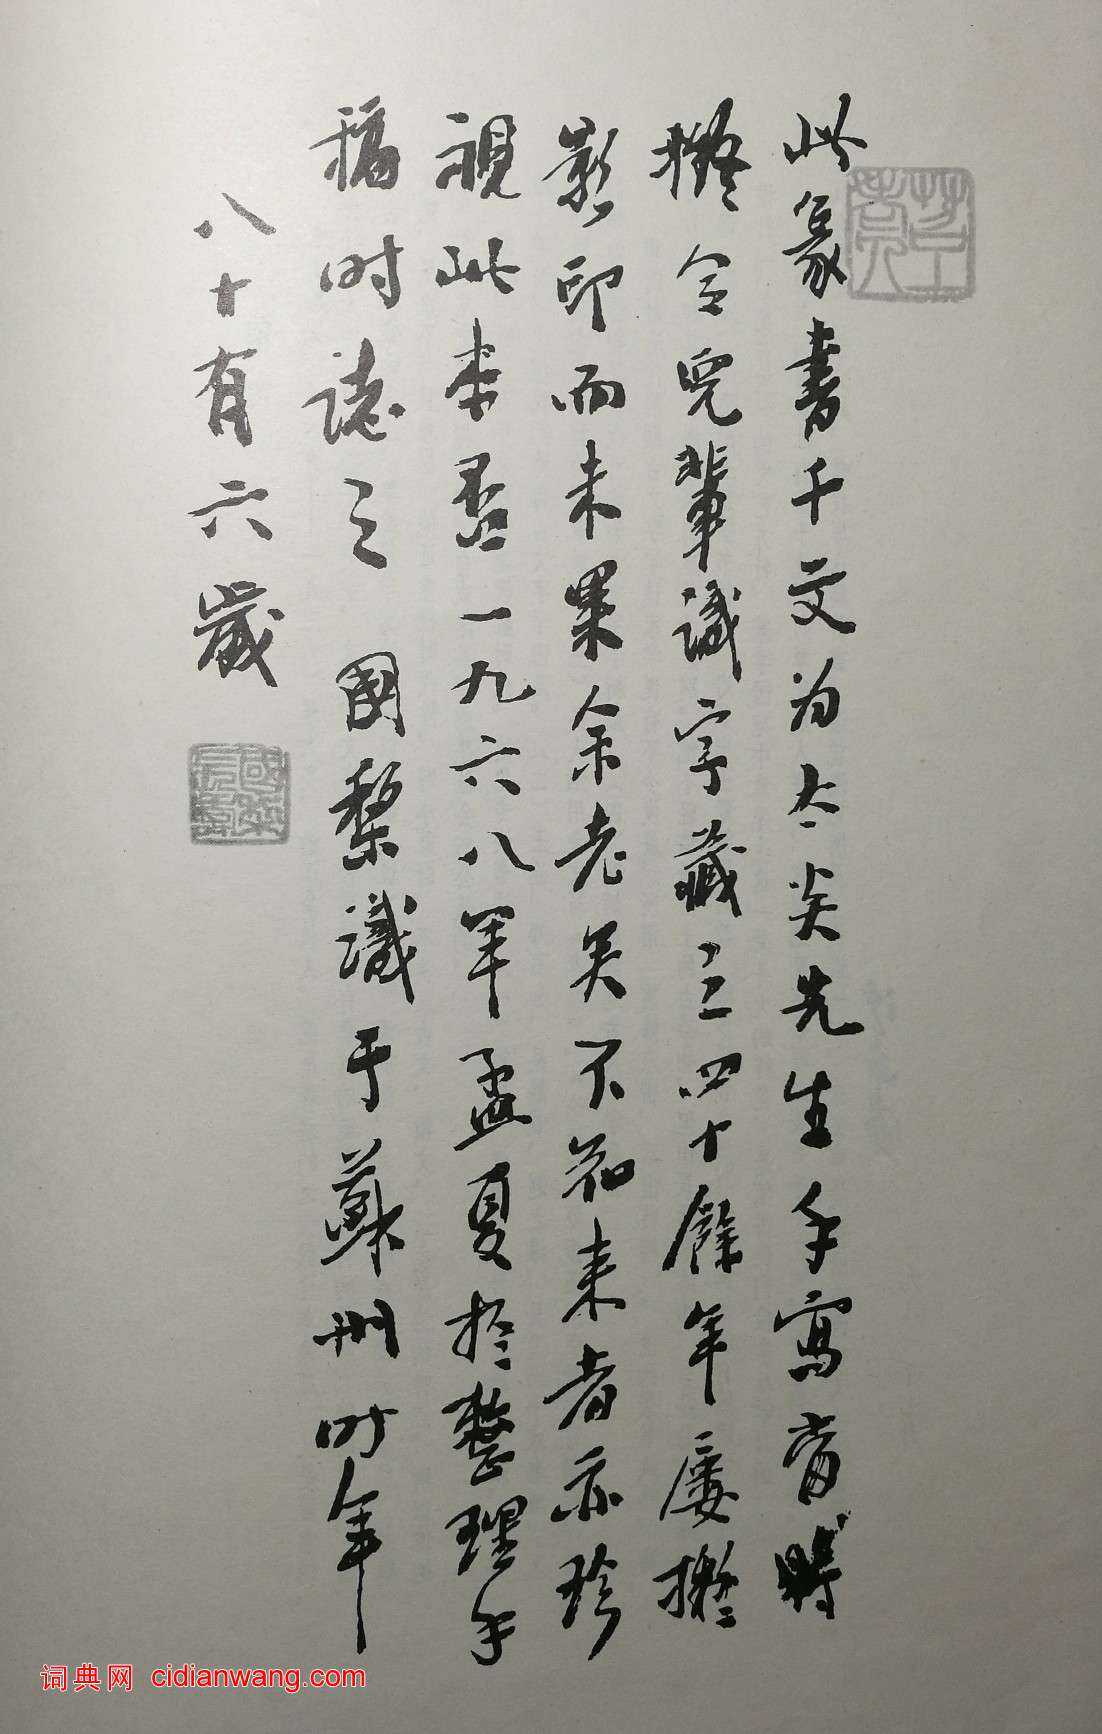 此篆書千文为太炎先生手寫當時
擬令兒輩識字藏之四十餘年屢擬
影印而未果余老矣不知来者亦珍
視此本否一九六八年孟夏於整理手
稿时誌之 國棃識于蘇州时年
八十有六歲
词典网 cidianwang.com